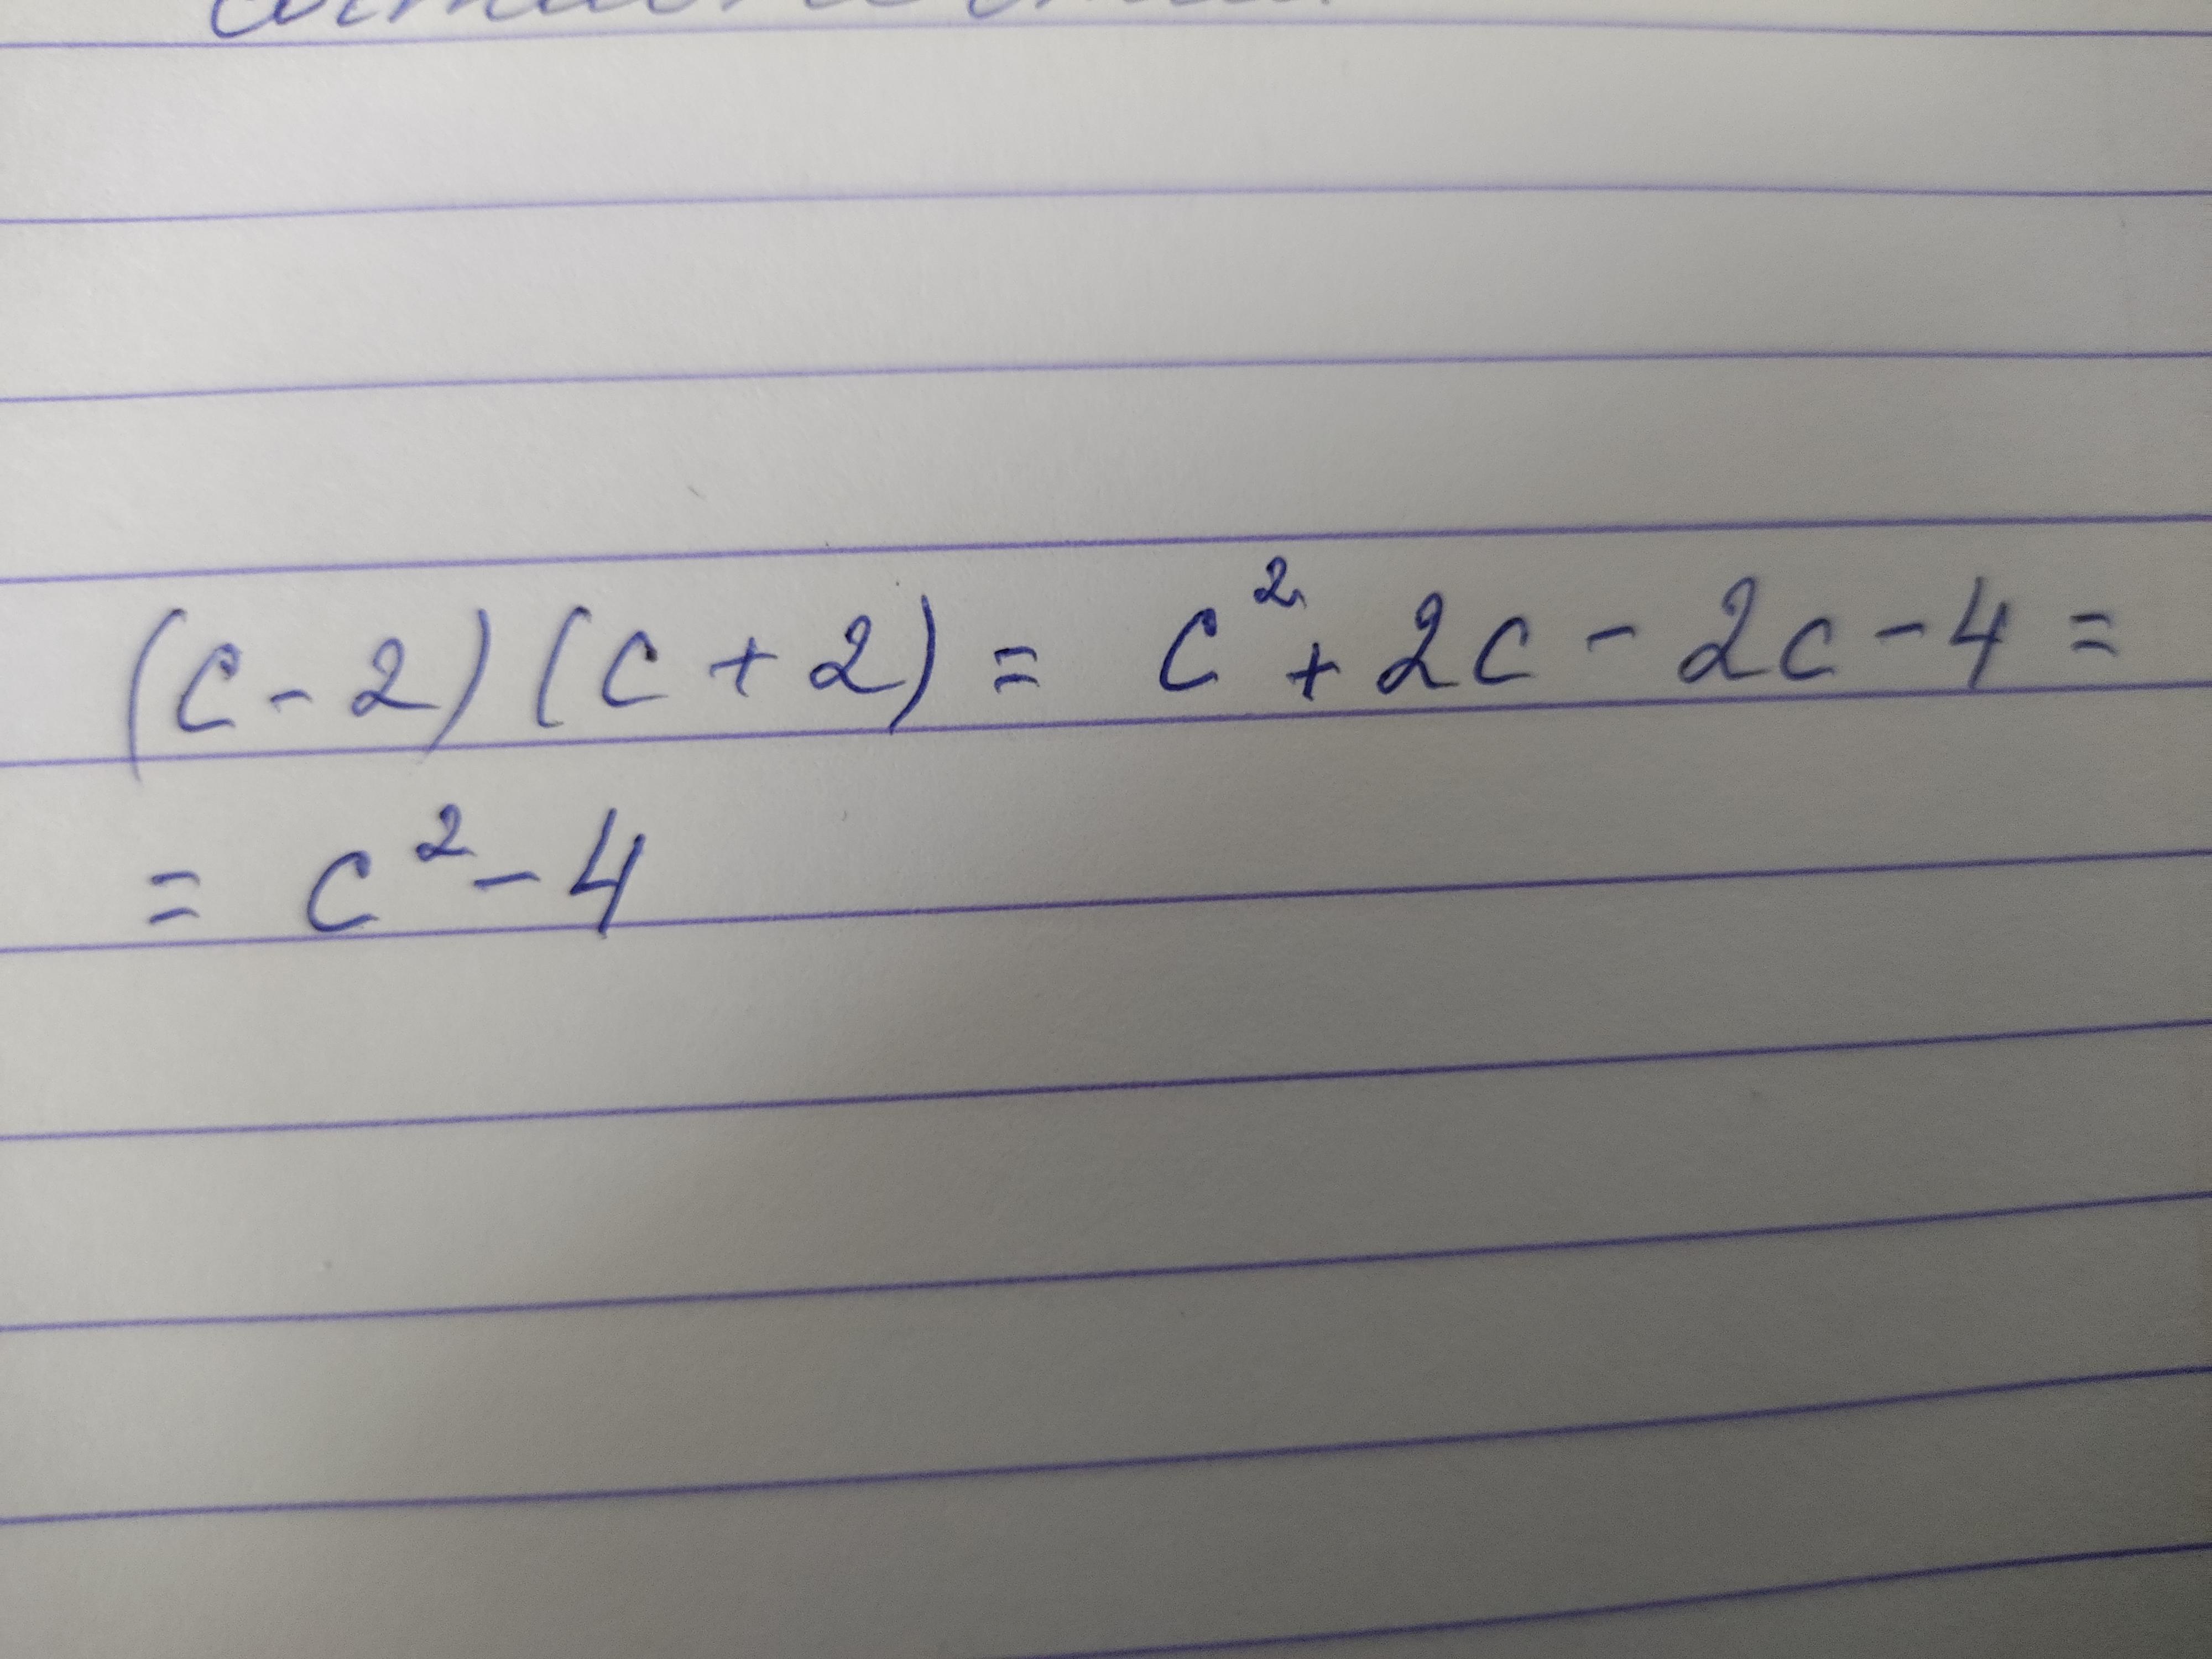 (c-2)(c+2) = c²+2c-2c-4=
= c²-4